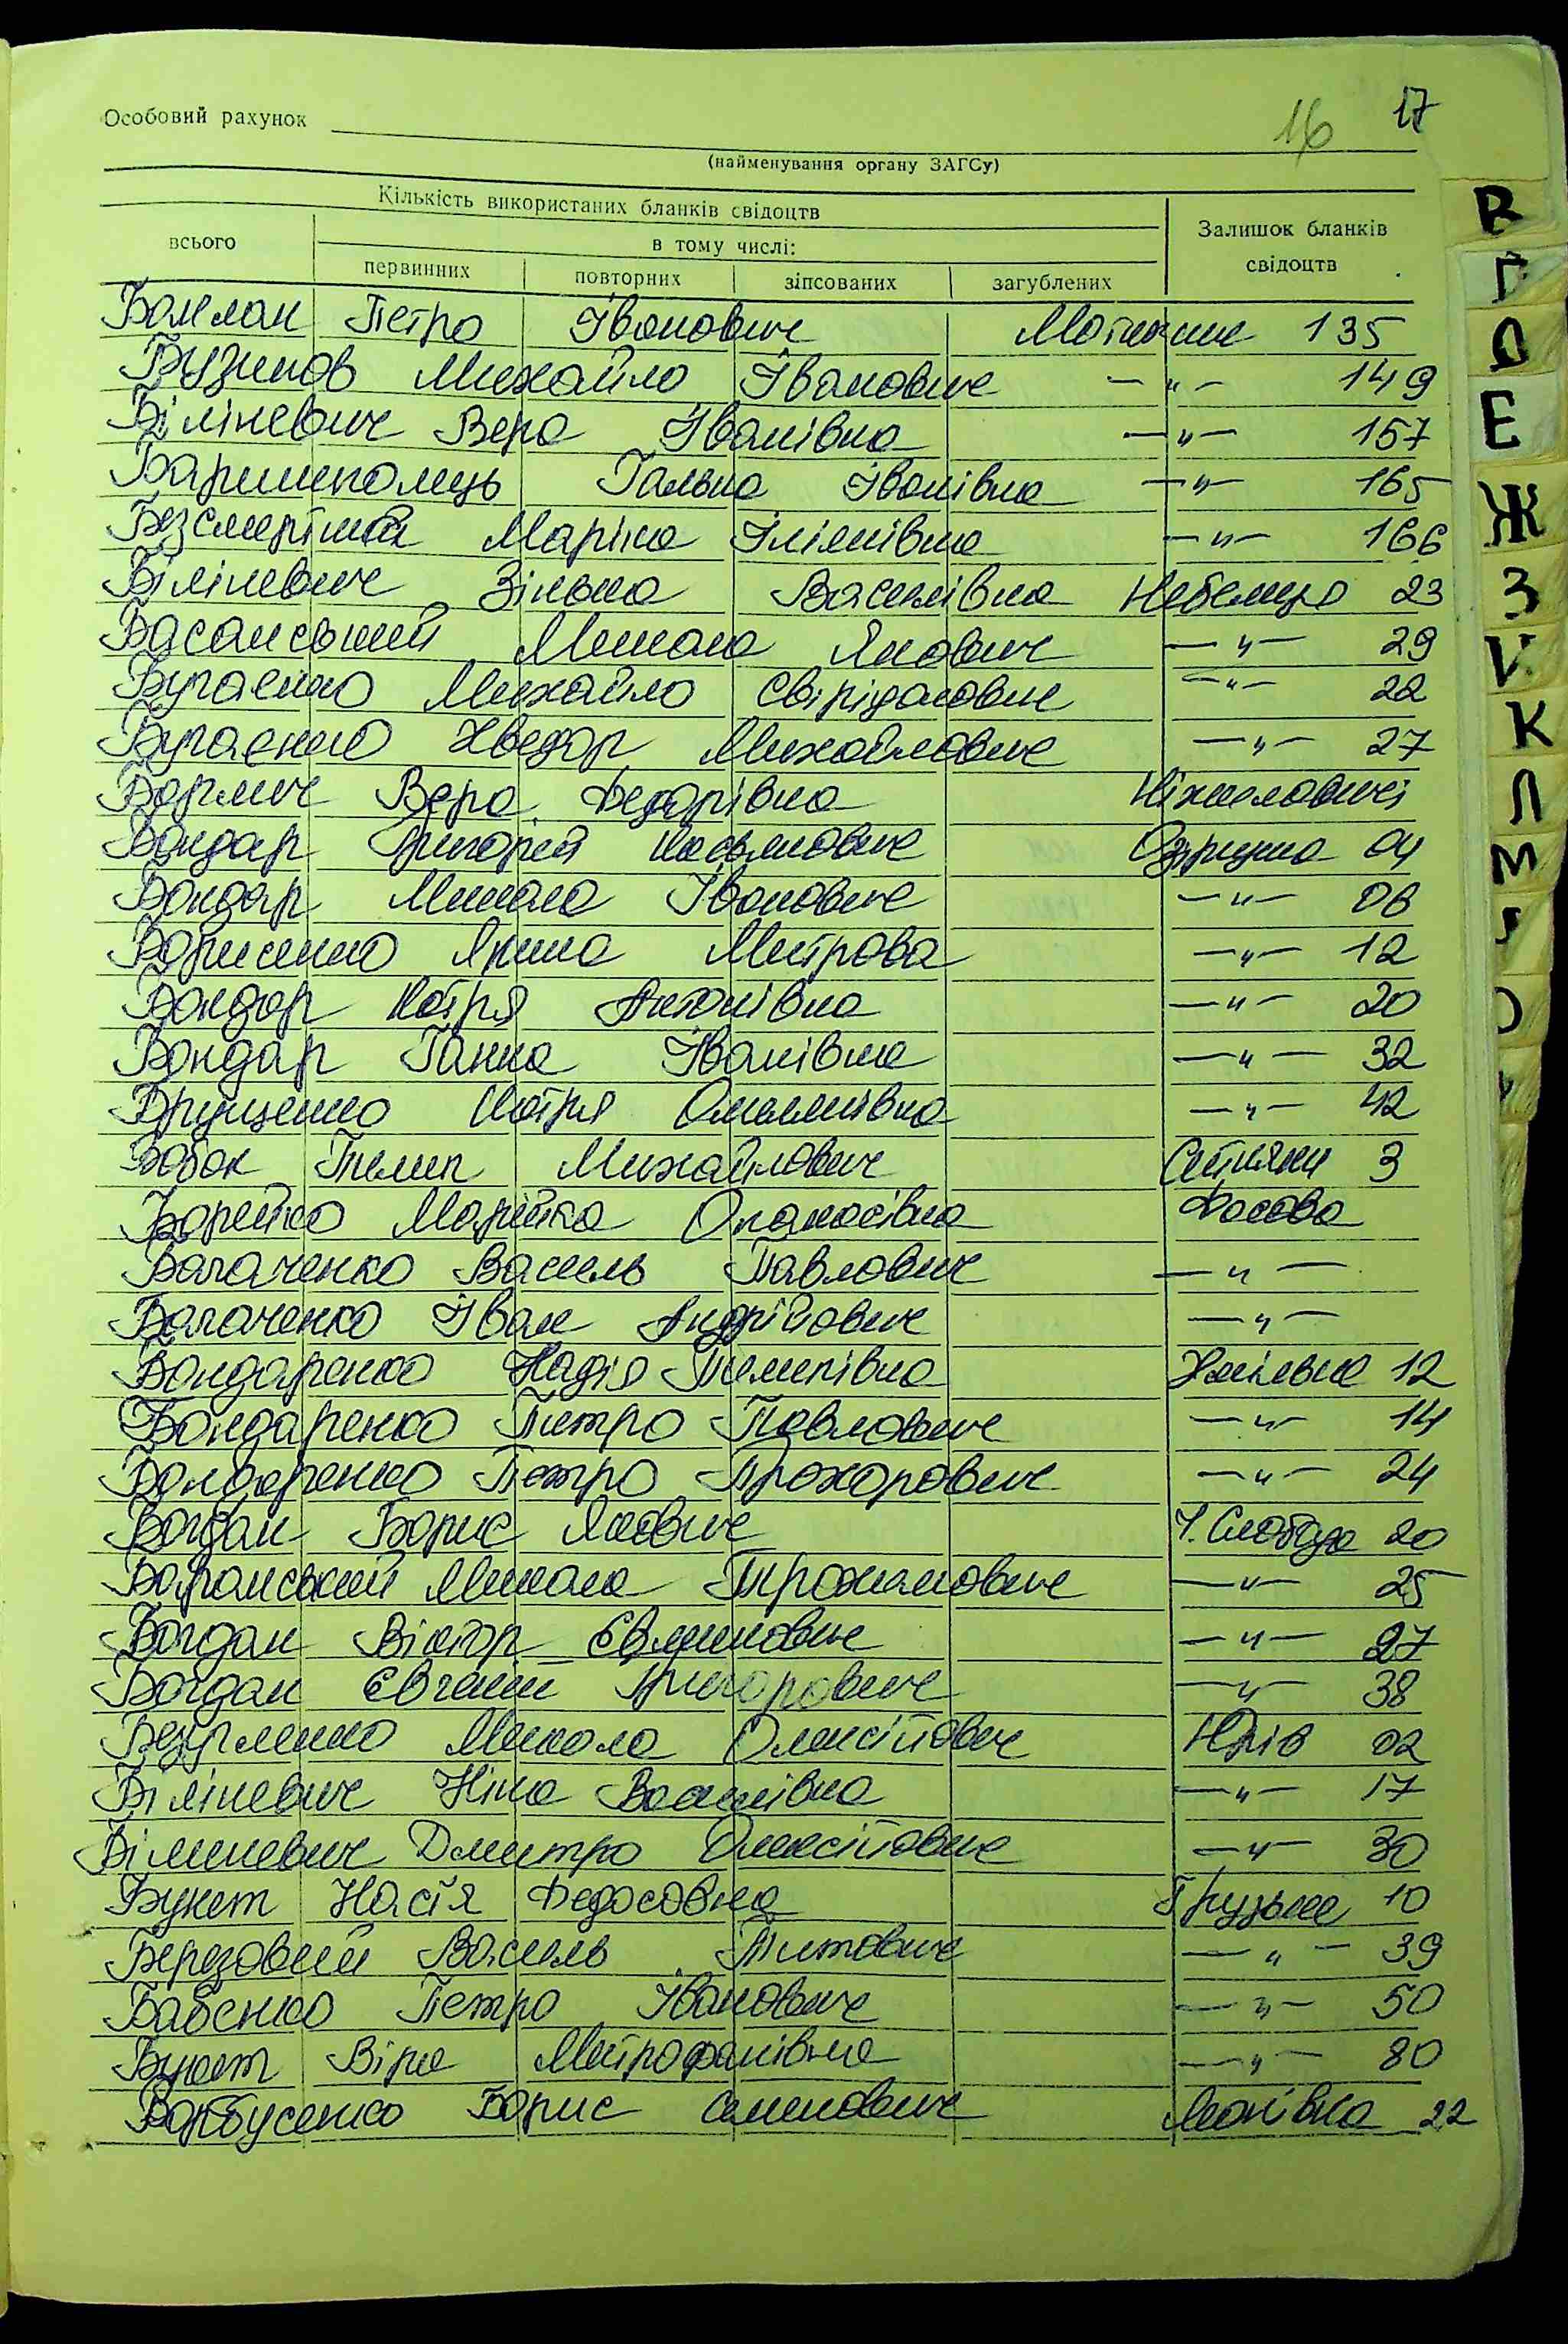 16 17
Особовий рахунок
(найменування органу ЗАГСу)
Кількість використаних бланків свідоцтв
Залишок бланків свідоцтв
всього
в тому числі:
первинних повторних зіпсованих загублених
Баклан Петро Іванович Мотижин 135
Бузинов Михайло Іванович —"— 149
Біліневич Вера Іванівна —"— 157
Баришполець Гальна Іванівна —"— 165
Безсмертний Маріна —"— 166
Біліневич Зільна Василівна Небелиця 23
Басанський Микола Якович —"— 29
Бугаєнко Михайло Свірідонович —"— 22
Бугаєнко Хведор Михайлович —"— 27
Вера Федорівна
Бондар Григорей Касьянович 04
Бондар Микола Іванович —"— 06
Борисенко Ярина Митрова —"— 12
Бондар Катря Антонівна —"— 20
Бондар Ганна Іванівна —"— 32
Катря Омелянівна —"— 42
Бабак Пилип Михайлович Ситняки 3
Борейко Марійка Опанасівна Фасова
Багаченко Василь Павлович —"—
Багаченко Іван Андрійович —"—
Бондаренко Надія Пилипівна Хмільна 12
Бондаренко Петро Павлович —"— 14
Бондаренко Петро Прохорович —"— 24
Богдан Борис Якович Ч. Слобода 20
Баранський Микола Трохимович —"— 25
Богдан Віктор —"— 27
Богдан Євгеній Григорович —"— 38
Микола Олексійович Юрів 02
Біліневич Ніна Василівна —"— 17
Біліневич Дмитро Олексійович —"— 30
Букет Настя Федосовна Грузьке 10
Березовий Василь Титович —"— 39
Бабенко Петро Іванович —"— 50
Букет Віра Митрофанівна —"— 80
Борис Семенович 22
В
Г
Д
Е
Ж
З
И
К
Л
М